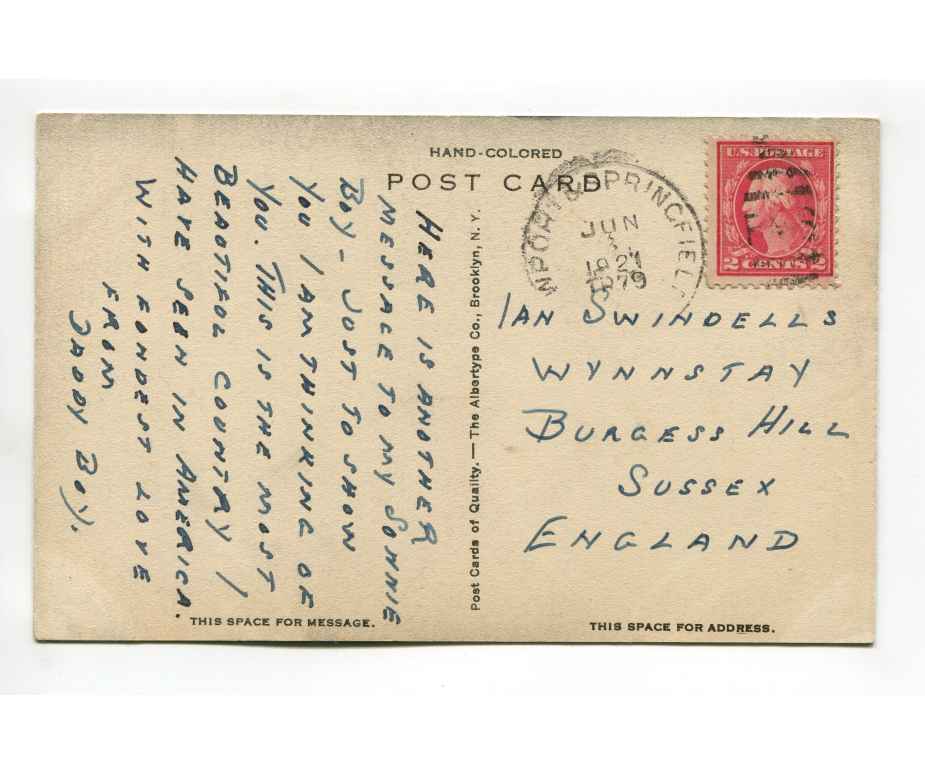 HAND-COLORED
POST CARD
HERE IS ANOTHER
MESSAGE TO MY SONNIE
BOY - JUST TO SHOW
YOU I AM THINKING OF
YOU. THIS IS THE MOST
BEAUTIFUL COUNTRY I
HAVE SEEN IN AMERICA.
WITH FONDEST LOVE
FROM
DADDY BOY.
THIS SPACE FOR MESSAGE.
Post Cards of Quality.—The Albertype Co., Brooklyn, N. Y.
SPRINGFIEL
JUN
U.S. POSTAGE
2 CENTS 2
IAN SWINDELLS
WYNNSTAY
BURGESS HILL
SUSSEX
ENGLAND
THIS SPACE FOR ADDRESS.